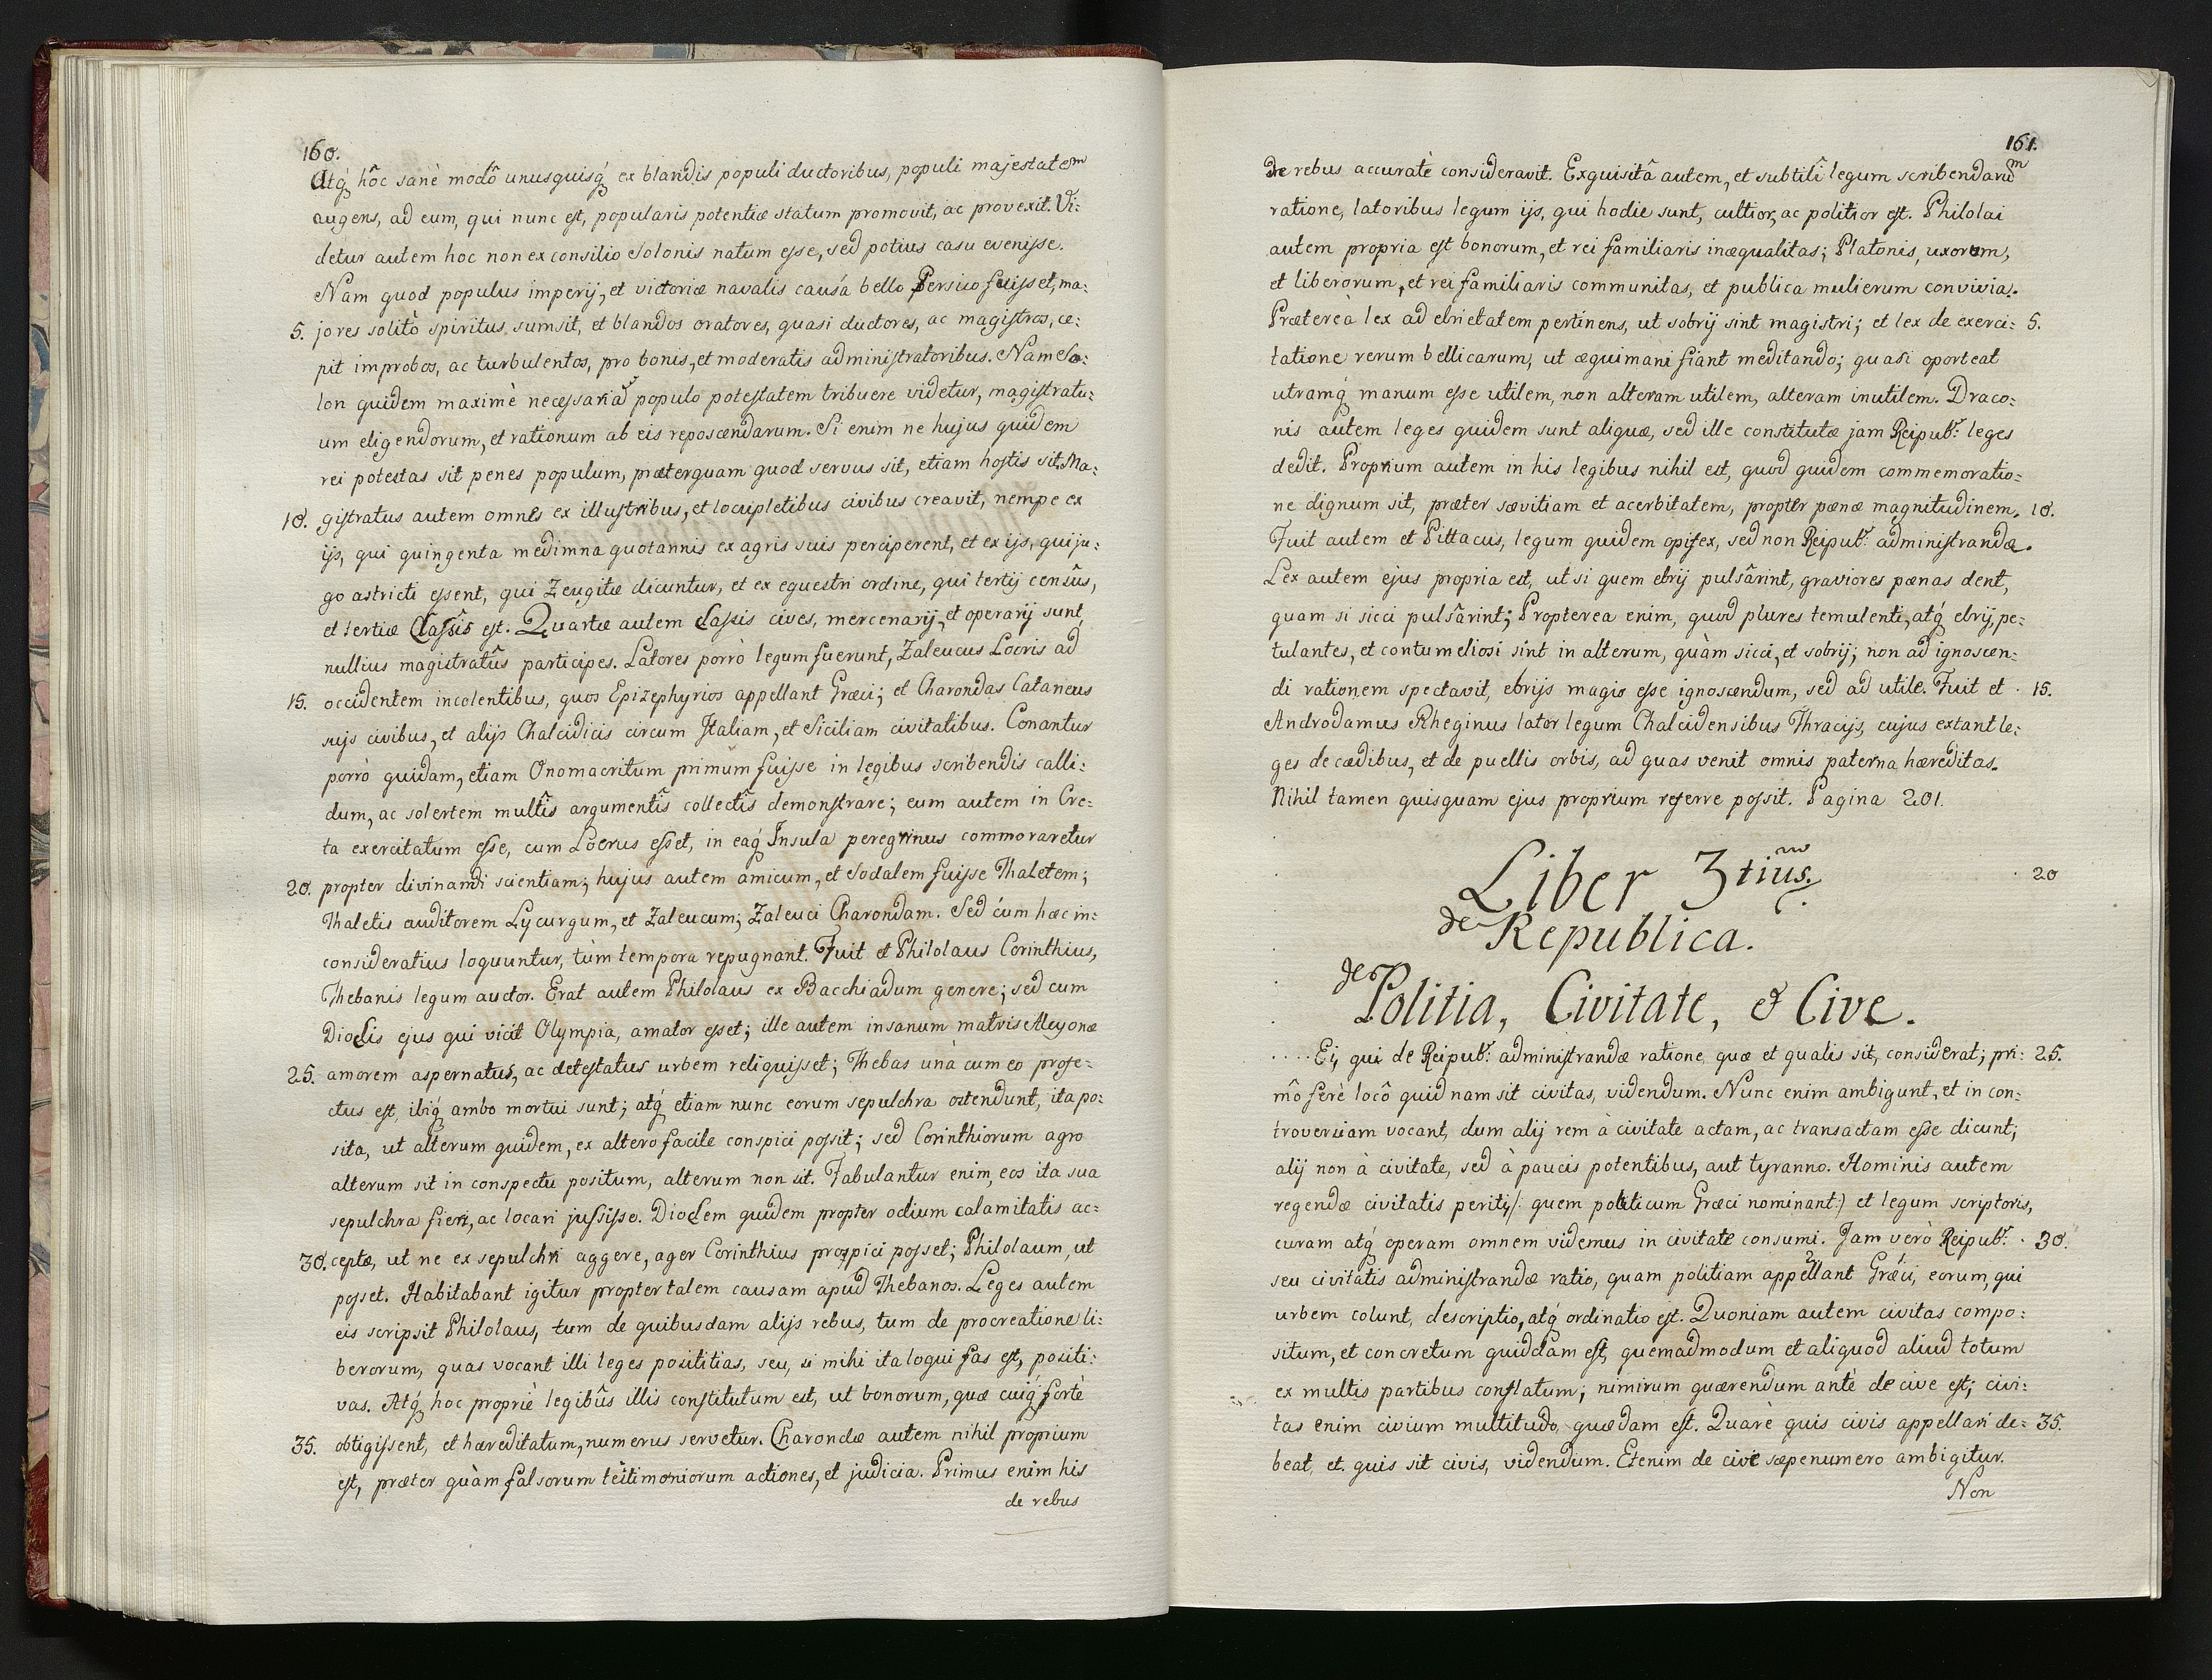 160.
Atq́ hôc sanè modô unusquisq́ ex blandis populi ductoribus, populi majestatem
augens, ad eum, qui nunc est, popularis potentiæ statum promovit, ac provexit. Vi:
detur autem hoc non ex consilio Solonis natum esse, sed potius casu evenisse.
Nam quod populus imperij, et victoriæ navalis causâ bello Persico fuisset, ma:
5. jores solitò spiritus sumsit, et blandos oratores, quasi ductores, ac magistros, ce:
pit improbos, ac turbulentos, pro bonis, et moderatis administratoribus. Nam So:
lon quidem maximè necessariã populo potestatem tribuere videtur, magistratu:
um eligendorum, et rationum ab eis reposcendarum. Si enim ne hujus quidem
rei potestas sit penes populum, præterquam quod servus sit, etiam hostis sit. Ma:
10. gistratus autem omnes ex illustribus, et locupletibus civibus creavit, nempe ex
ijs, qui quingenta medimna quotannis ex agris suis perciperent, et ex ijs, qui ju:
go astricti essent, qui Zeugitæ dicuntur, et ex equestri ordine, qui tertij censûs,
et tertiæ Classis est. Quartæ autem classis cives, mercenarij, et operarij sunt,
nullius magistratûs participes. Latores porrò legum fuerunt, Zaleucus Locris ad
15. occidentem incolentibus, quos Epizephyrios appellant Græci; et Charondas Cataneus
suis civibus, et alijs Chalcidicis circum Italiam, et Siciliam civitatibus. Conantur
porrò quidam, etiam Onomacritum primum fuisse in legibus scribendis calli:
dum, ac solertem multîs argumentîs collectîs demonstrare; eum autem in Cre:
ta exercitatum esse, cum Locrus esset, in eaq́ Insula peregrinus commoraretur
20. propter divinandi scientiam; hujus autem amicum, et Sodalem fuisse Thaletem;
Thaletis auditorem Lycurgum, et Zaleucum; Zaleuci Charondam. Sed cùm hæc in:
consideratius loquuntur, tùm tempora repugnant. Fuit et Philolaus Corinthius,
Thebanis legum auctor. Erat autem Philolaus ex Bacchiadum genere; sed cum
Dioclis ejus qui vicit Olympia, amator esset; ille autem insanum matris Alcyonæ
25. amorem aspernatus, ac detestatus urbem reliquisset; Thebas unà cum eo profe:
ctus est, ibiq́ ambo mortui sunt; atq́ etiam nunc eorum sepulchra ostendunt, ita po:
sita, ut alterum quidem, ex altero facile conspici possit; sed Corinthiorum agro
alterum sit in conspectu positum, alterum non sit. Fabulantur enim, eos ita sua
sepulchra fieri, ac locari jussisse. Dioclem quidem propter odium calamitatis ac:
30. ceptæ, ut ne ex sepulchri aggere, ager Corinthius prospici posset; Philolaum, ut
posset. Habitabant igitur propter talem causam apud Thebanos. Leges autem
eis scripsit Philolaus, tum de quibusdam alijs rebus, tum de procreatione li:
berorum, quas vocant illi leges posititias, seu, si mihi ita loqui fas est, positi:
vas. Atq́ hoc propriè legibûs illis constitutum est, ut bonorum, quæ cuiq́ fortè
35. obtigissent, et hæreditatum, numerus servetur. Charondæ autem nihil proprium
est, præter quàm falsorum testimoniorum actiones, et judicia. Primus enim his
de rebus
161.
de rebus accuratè consideravit. Exquisitâ autem, et subtilî legum scribendarũm
ratione, latoribus legum ijs, qui hodie sunt, cultior, ac politior est. Philolai
autem propria est bonorum, et rei familiaris inæqualitas; Platonis, uxorum,
et liberorum, et rei familiaris communitas, et publica mulierum convivia.
Prætereà lex ad ebrietatem pertinens, ut sobrij sint magistri; et lex de exerci: 5.
tatione rerum bellicarum, ut æquimani fiant meditando; quasi oporteat
utramq́ manum esse utilem, non alteram utilem, alteram inutilem. Draco:
nis autem leges quidem sunt aliquæ, sed ille constitutæ jam Reipubr. leges
dedit. Proprium autem in his legibus nihil est, quod quidem commemoratio:
ne dignum sit, præter sævitiam et acerbitatem, propter pænæ magnitudinem. 10.
Fuit autem et Pittacus, legum quidem opifex, sed non Reipubr. administrandæ.
Lex autem ejus propria est, ut si quem ebrij pulsârint, graviores pænas dent,
quam si sicci pulsârint; Propterea enim, quod plures temulenti, atq́ ebrij, pe:
tulantes, et contumeliosi sint in alterum, quàm sicci, et sobrij; non ad ignoscen:
di rationem spectavit, ebrijs magis esse ignoscendum, sed ad utile. Fuit et 15.
Androdamus Rheginus lator legum Chalcidensibus Thracijs, cujus extant le:
ges de cædibus, et de puellis orbis, ad quas venit omnis paterna hæreditas.
Nihil tamen quisquam ejus proprium referre possit. Pagina 201.
Liber 3tius. 20
de Republica.
de Politia, Civitate, & Cive.
Ei, qui de Reipubr. administrandæ ratione, quæ et qualis sit, considerat; pri: 25.
mô ferè locô quidnam sit civitas, videndum. Nunc enim ambigunt, et in con:
troversiam vocant, dum alij rem à civitate actam, ac transactam esse dicunt;
alij non à civitate, sed à paucis potentibus, aut tyranno. Hominis autem
regendæ civitatis periti, /: quem politicum Græci nominant:/ et legum scriptoris,
curam atq́ operam omnem videmus in civitate consumi. Jam verò Reipubr. 30.
seu civitatis administrandæ ratio, quam politiam appellant Græci, eorum, qui
urbem colunt, descriptio, atq́ ordinatio est. Quoniam autem civitas compo:
situm, et concretum quiddam est, quemadmodum et aliquod aliud totum
ex multis partibus conflatum; nimirum quærendum antè de cive est; civi:
tas enim civium multitudo quædam est. Quarè quis civis appellari de: 35.
beat, et quis sit civis, videndum. Etenim de cive sæpenumero ambigitur.
Non